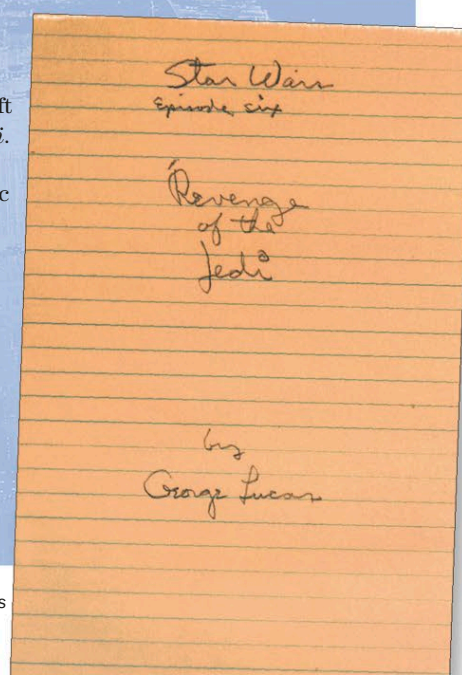 ft
i.
c
Star Wars
Episode six
Revenge
of the
Jedi
by
George Lucas
s